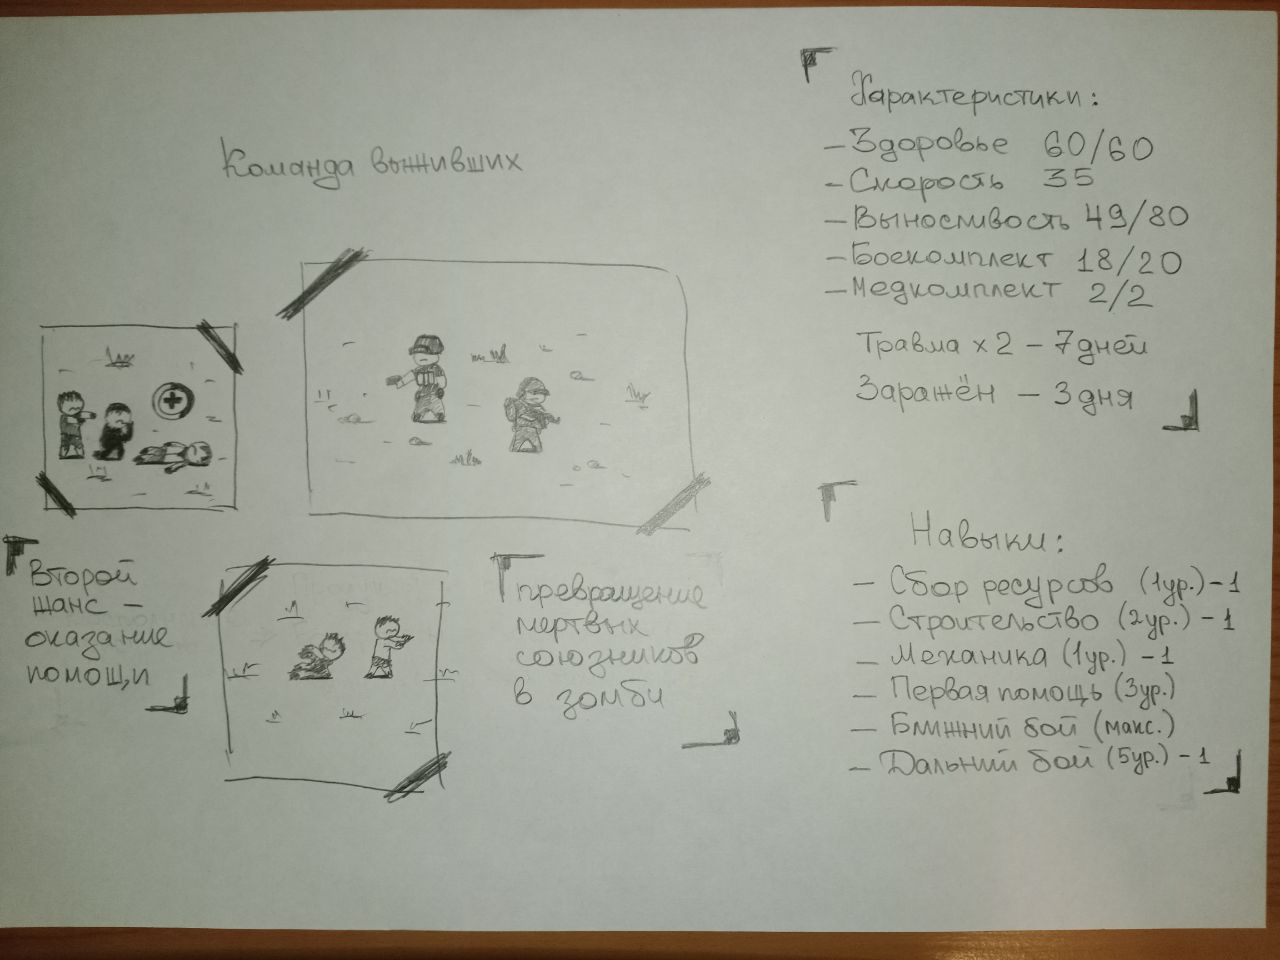 Команда выживших
Характеристики:
- Здоровье 60/60
- Скорость 35
- Выносливость 49/80
- Боекомплект 18/20
- Медкомплект 2/2
Травма x 2 - 7 дней
Заражён - 3 дня
Второй
шанс -
оказание
помощи
превращение
мертвых
союзников
в зомби
Навыки:
- Сбор ресурсов (1ур.) - 1
- Строительство (2ур.) - 1
- Механика (1ур.) - 1
- Первая помощь (3ур.)
- Ближний бой (макс.)
- Дальний бой (5ур.) - 1